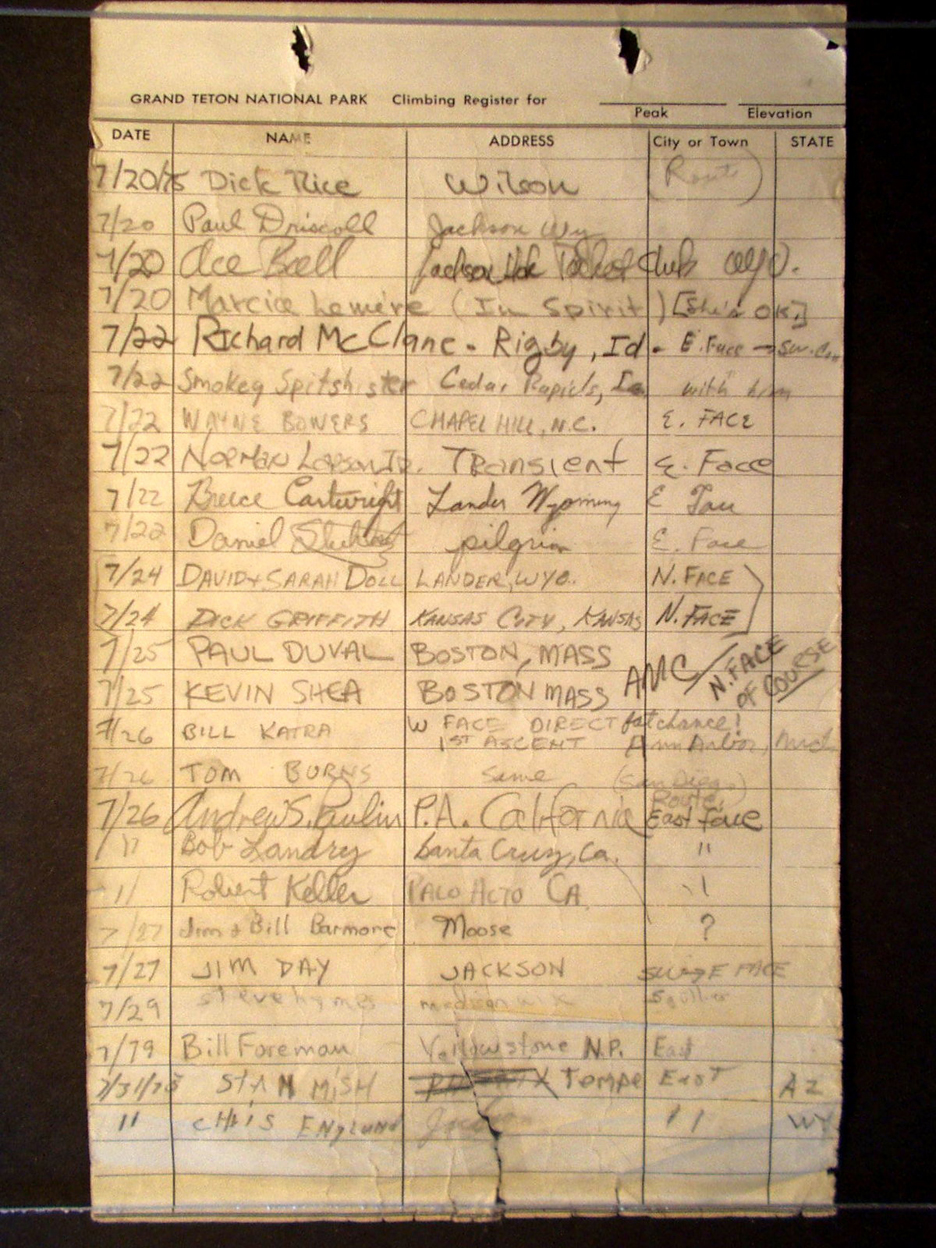 GRAND TETON NATIONAL PARK Climbing Register for
Peak Elevation
DATE NAME ADDRESS City or Town STATE
7/20/75 Dick Rice Wilson (Route)
7/20 Paul Driscoll Jackson Wy
7/20 Ace Ball Jackson Hole Club Wyo.
7/20 Marcice Lemire (In Spirit) [She's OK.]
7/22 Richard McClane - Rigby, Id - E. Face → SW.
7/22 Smokey Cedar Rapids, Ia with him
7/22 WAYNE BOWERS CHAPEL HILL, N.C. E. FACE
7/22 Norman Larson Jr. Transient E. Face
7/22 Bruce Cartwright Lander Wyoming E
7/22 Daniel pilgrim E. Face
7/24 DAVID + SARAH DOLL LANDER, WYO. N. FACE
7/24 DICK GRIFFITH KANSAS CITY, KANSAS N. FACE
7/25 PAUL DUVAL BOSTON, MASS AMC / N. FACE OF COURSE
7/25 KEVIN SHEA BOSTON MASS
7/26 BILL KATRA W FACE DIRECT fat chance!
1ST ASCENT Ann Arbor, Mich
7/26 TOM BURNS same (San Diego)
Route
7/26 Andrew S. Paulin P.A. California East Face
" Bob Landry Santa Cruz, Ca. "
" Robert Keller PALO ALTO CA "
7/27 Jim + Bill Barmore Moose ?
7/27 JIM DAY JACKSON FACE
7/29 steve hymes madison wix
7/79 Bill Foreman Yellowstone N.P. East
7/31/75 STAN MISH Tempe East AZ
" CHRIS ENGLUND Jackson " WY